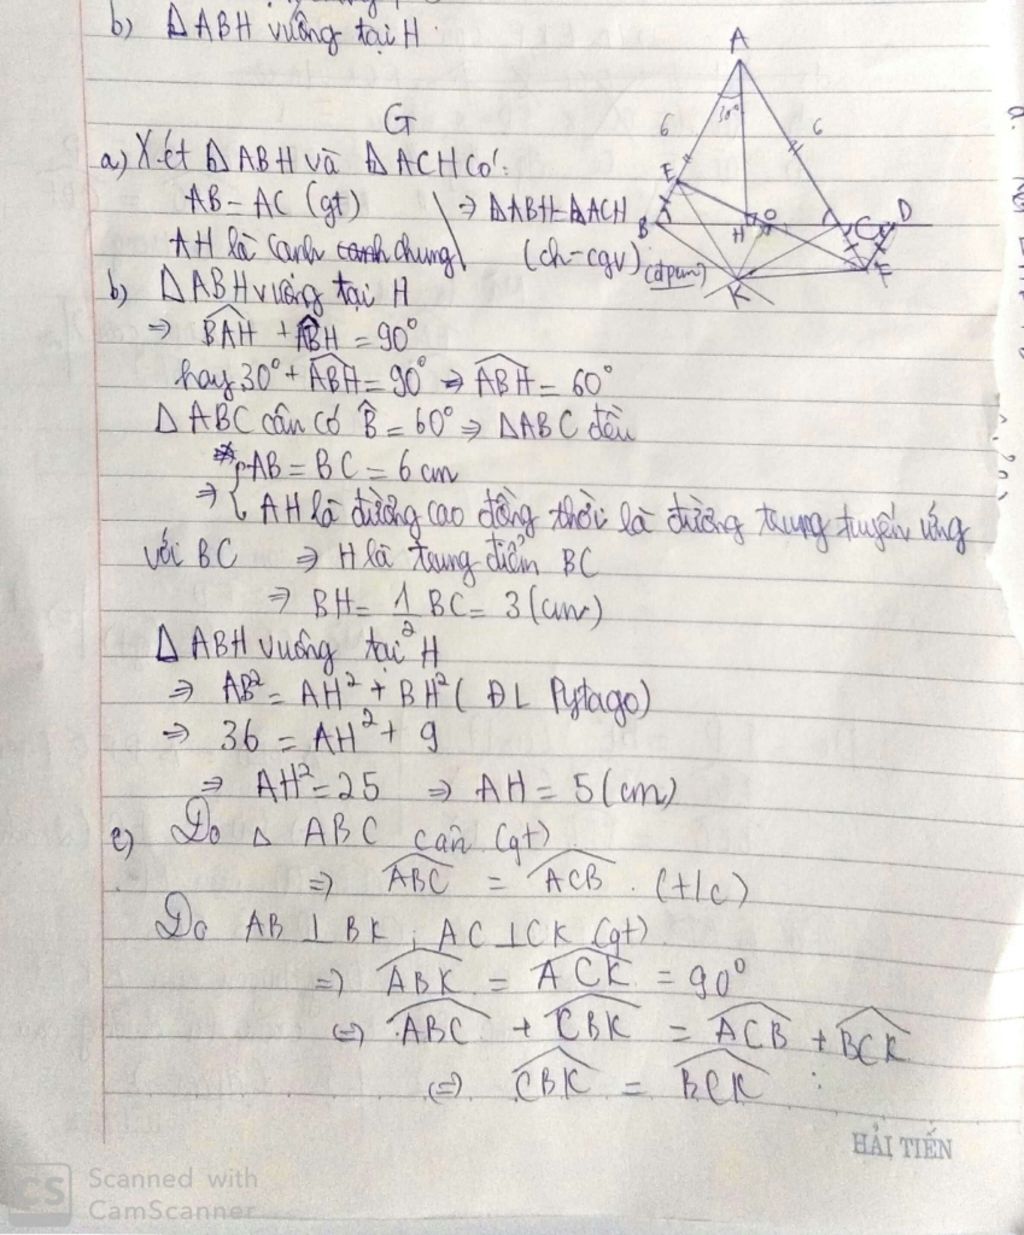 b) Δ ABH vuông tại H
G
a) Xét Δ ABH và Δ ACH có:
AB = AC (gt)
AH là cạnh chung
⇒ ΔABH = ΔACH
(ch-cgv) (đpcm)
b) Δ ABH vuông tại H
⇒ BAH + ABH = 90°
hay 30° + ABH = 90° ⇒ ABH = 60°
Δ ABC cân có B̂ = 60° ⇒ ΔABC đều
⇒ { AB = BC = 6 cm
AH là đường cao đồng thời là đường trung tuyến ứng
với BC ⇒ H là trung điểm BC
⇒ BH = 1/2 BC = 3 (cm)
Δ ABH vuông tại H
⇒ AB² = AH² + BH² ( ĐL Pytago)
⇒ 36 = AH² + 9
⇒ AH² = 25 ⇒ AH = 5 (cm)
c) Do Δ ABC cân (gt)
⇒ ABC = ACB . (t/c)
Do AB ⊥ BK ; AC ⊥ CK (gt)
⇒ ABK = ACK = 90°
⇔ ABC + CBK = ACB + BCK
⇔ CBK = BCK
A
30°
6
6
E
B
H
O
C
D
K
F
HẢI TIẾN
CS
Scanned with
CamScanner